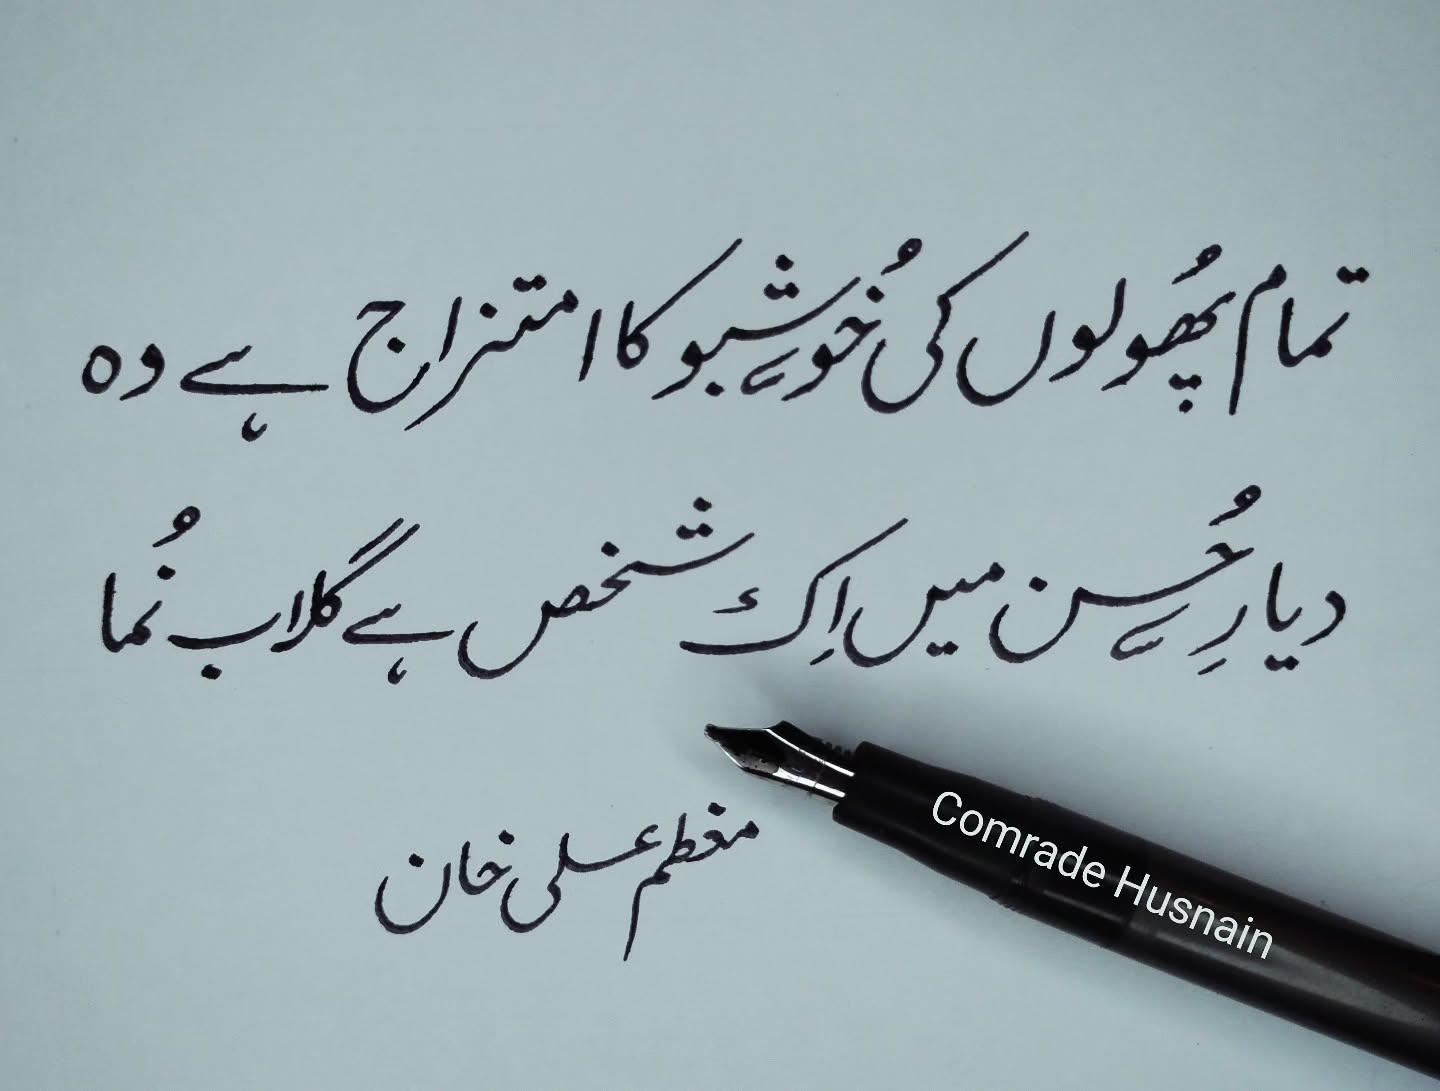 تمام پھُولوں کی خُوشبو کا امتزاج ہے وہ
دیارِ حُسن میں اِک شخص ہے گلاب نُما
معظم علی خان
Comrade Husnain